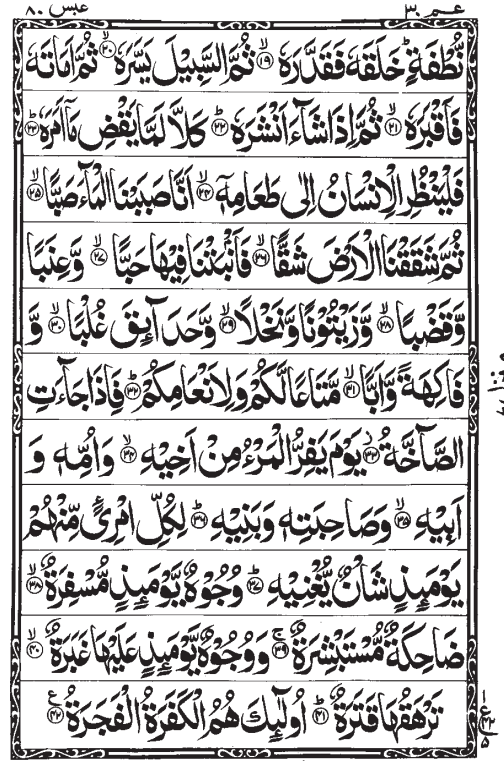 عبس ٨٠ عـم ٣٠
نُّطْفَةٍ ؕ خَلَقَهٗ فَقَدَّرَهٗ ۙ﴿۱۹﴾ ثُمَّ السَّبِیْلَ یَسَّرَهٗ ۙ﴿۲۰﴾ ثُمَّ اَمَاتَهٗ
فَاَقْبَرَهٗ ۙ﴿۲۱﴾ ثُمَّ اِذَا شَآءَ اَنْشَرَهٗ ؕ﴿۲۲﴾ كَلَّا لَمَّا یَقْضِ مَاۤ اَمَرَهٗ ؕ﴿۲۳﴾
فَلْیَنْظُرِ الْاِنْسَانُ اِلٰی طَعَامِهٖۤ ۙ﴿۲۴﴾ اَنَّا صَبَبْنَا الْمَآءَ صَبًّا ۙ﴿۲۵﴾
ثُمَّ شَقَقْنَا الْاَرْضَ شَقًّا ۙ﴿۲۶﴾ فَاَنْۢبَتْنَا فِیْهَا حَبًّا ۙ﴿۲۷﴾ وَّعِنَبًا
وَّقَضْبًا ۙ﴿۲۸﴾ وَّزَیْتُوْنًا وَّنَخْلًا ۙ﴿۲۹﴾ وَّحَدَآئِقَ غُلْبًا ۙ﴿۳۰﴾ وَّ
فَاكِهَةً وَّاَبًّا ۙ﴿۳۱﴾ مَّتَاعًا لَّكُمْ وَلِاَنْعَامِكُمْ ؕ﴿۳۲﴾ فَاِذَا جَآءَتِ
الصَّآخَّةُ ؗ﴿۳۳﴾ یَوْمَ یَفِرُّ الْمَرْءُ مِنْ اَخِیْهِ ۙ﴿۳۴﴾ وَاُمِّهٖ وَ
اَبِیْهِ ۙ﴿۳۵﴾ وَصَاحِبَتِهٖ وَبَنِیْهِ ؕ﴿۳۶﴾ لِكُلِّ امْرِئٍ مِّنْهُمْ
یَوْمَئِذٍ شَاْنٌ یُّغْنِیْهِ ؕ﴿۳۷﴾ وُجُوْهٌ یَّوْمَئِذٍ مُّسْفِرَةٌ ۙ﴿۳۸﴾
ضَاحِكَةٌ مُّسْتَبْشِرَةٌ ۚ﴿۳۹﴾ وَوُجُوْهٌ یَّوْمَئِذٍ عَلَیْهَا غَبَرَةٌ ۙ﴿۴۰﴾
تَرْهَقُهَا قَتَرَةٌ ؕ﴿۴۱﴾ اُولٰٓئِكَ هُمُ الْكَفَرَةُ الْفَجَرَةُ ﴿۴۲﴾ ع